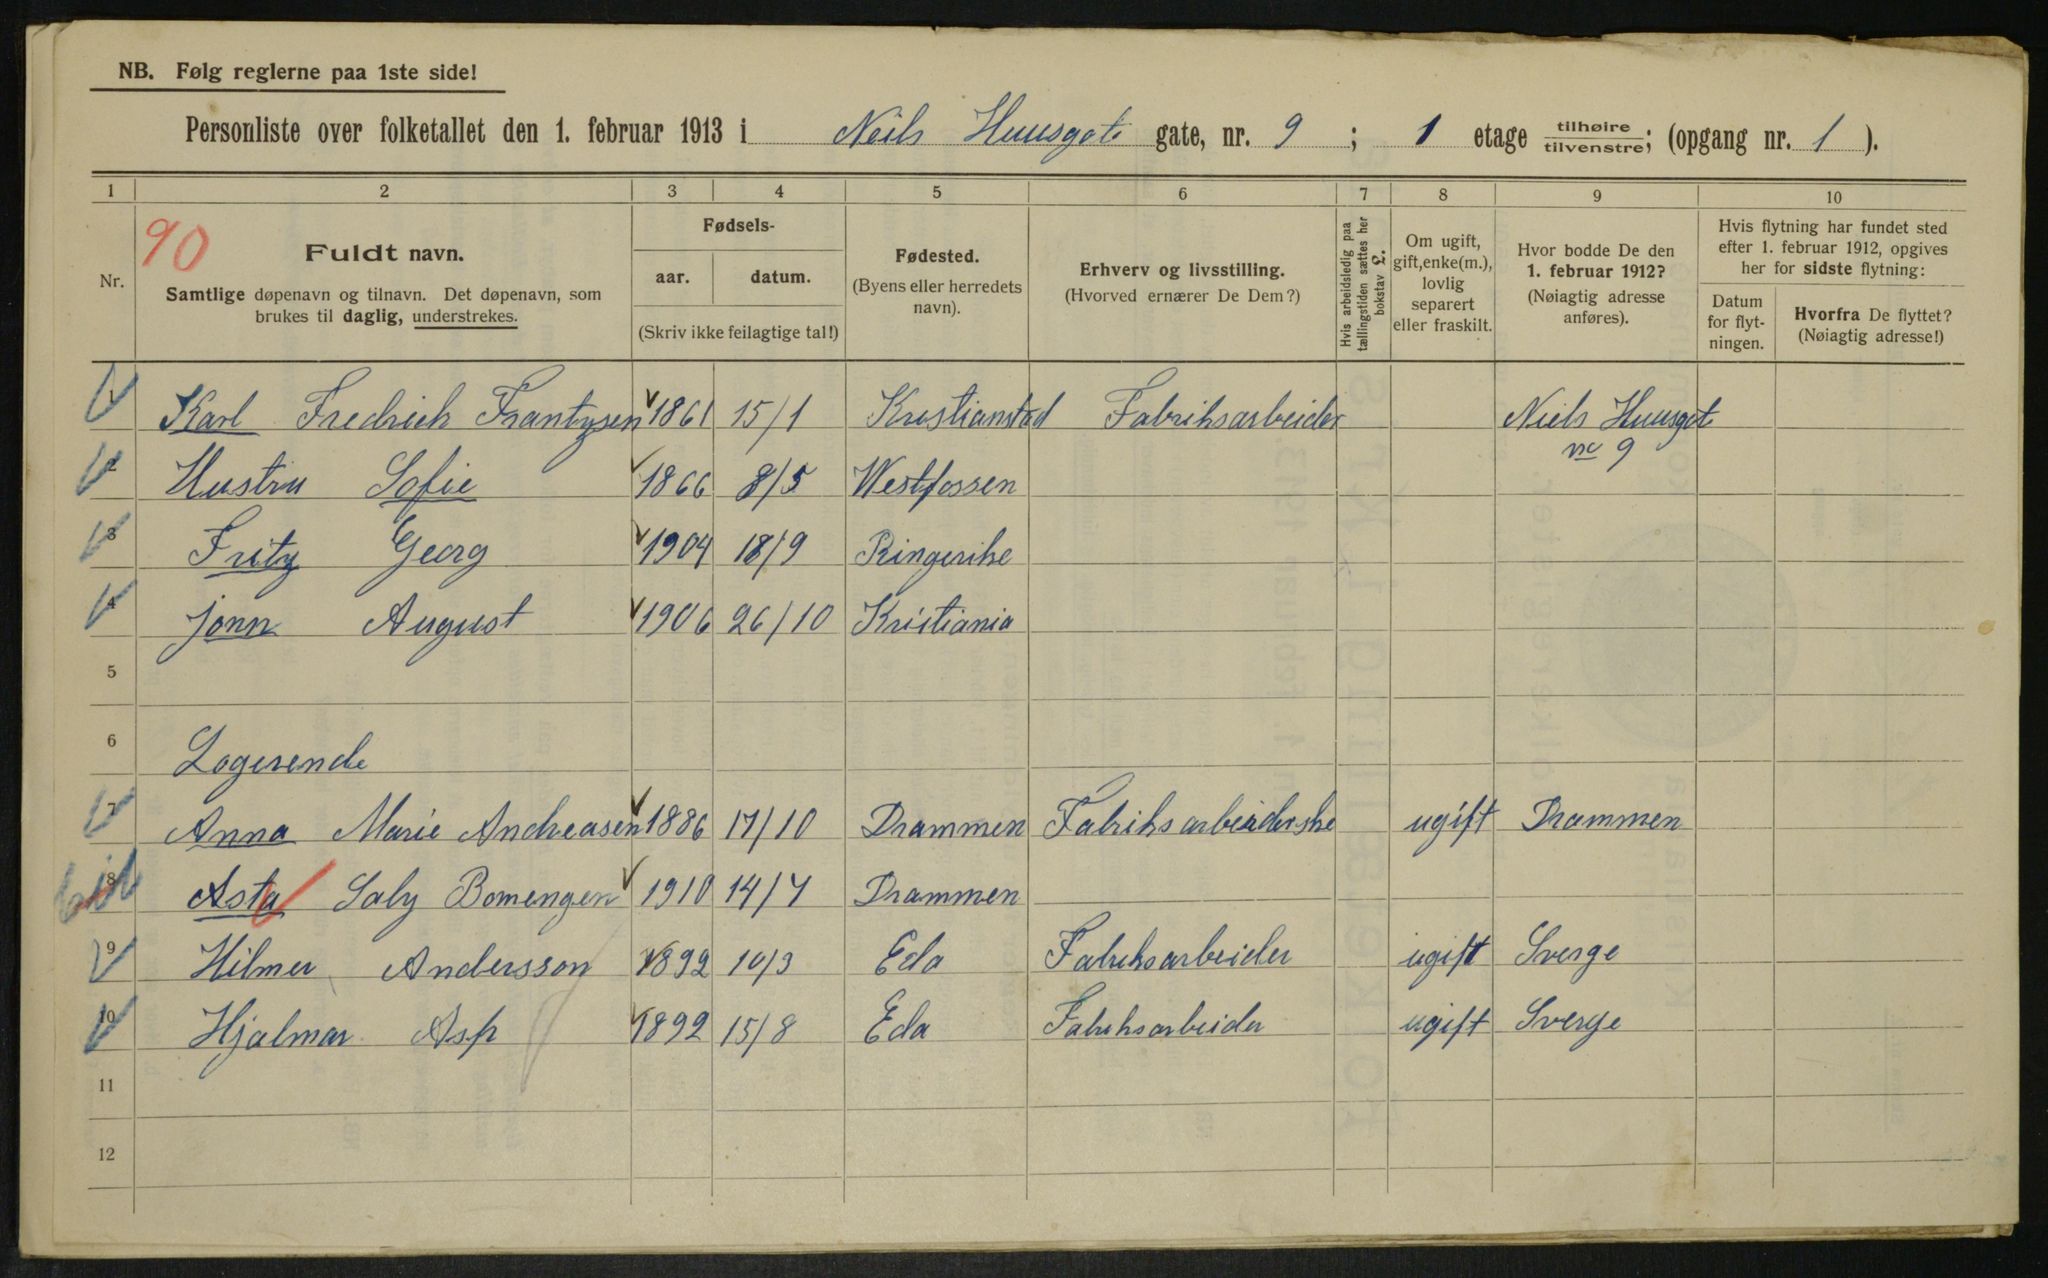 NB. Følg reglerne paa 1ste side!
Personliste over folketallet den 1. februar 1913 i Neils Huusgate gate, nr. 9 ; 1 etage tilhøire tilvenstre; (opgang nr. 1 ).
1 2 3 4 5 6 7 8 9 10
90
Nr.
Fuldt navn.
Samtlige døpenavn og tilnavn. Det døpenavn, som
brukes til daglig, understrekes.
Fødsels-
aar. datum.
(Skriv ikke feilagtige tal!)
Fødested.
(Byens eller herredets
navn).
Erhverv og livsstilling.
(Hvorved ernærer De Dem?)
Hvis arbeidsledig paa
tællingstiden sættes her
bokstav £.
Om ugift,
gift, enke(m.),
lovlig
separert
eller fraskilt.
Hvor bodde De den
1. februar 1912?
(Nøiagtig adresse
anføres).
Hvis flytning har fundet sted
efter 1. februar 1912, opgives
her for sidste flytning:
Datum
for flyt-
ningen.
Hvorfra De flyttet?
(Nøiagtig adresse!)
1 Karl Fredrich Frantzsen 1861 15/1 Kristianstad Fabriksarbeider Niels Huusgate
no 9
2 Hustru Sofie 1866 8/5 Westfossen
3 Fritz Georg 1904 18/9 Ringerike
4 Jonn August 1906 26/10 Kristiania
5
6 Logerende
7 Anna Marie Andreasen 1886 17/10 Drammen Fabriksarbeiderske ugift Drammen
8 Asta Saly Bomengen 1910 14/7 Drammen
9 Hilmer Andersson 1892 10/3 Eda Fabriksarbeider ugift Sverge
10 Hjalmar Asp 1892 15/8 Eda Fabriksarbeider ugift Sverge
11
12